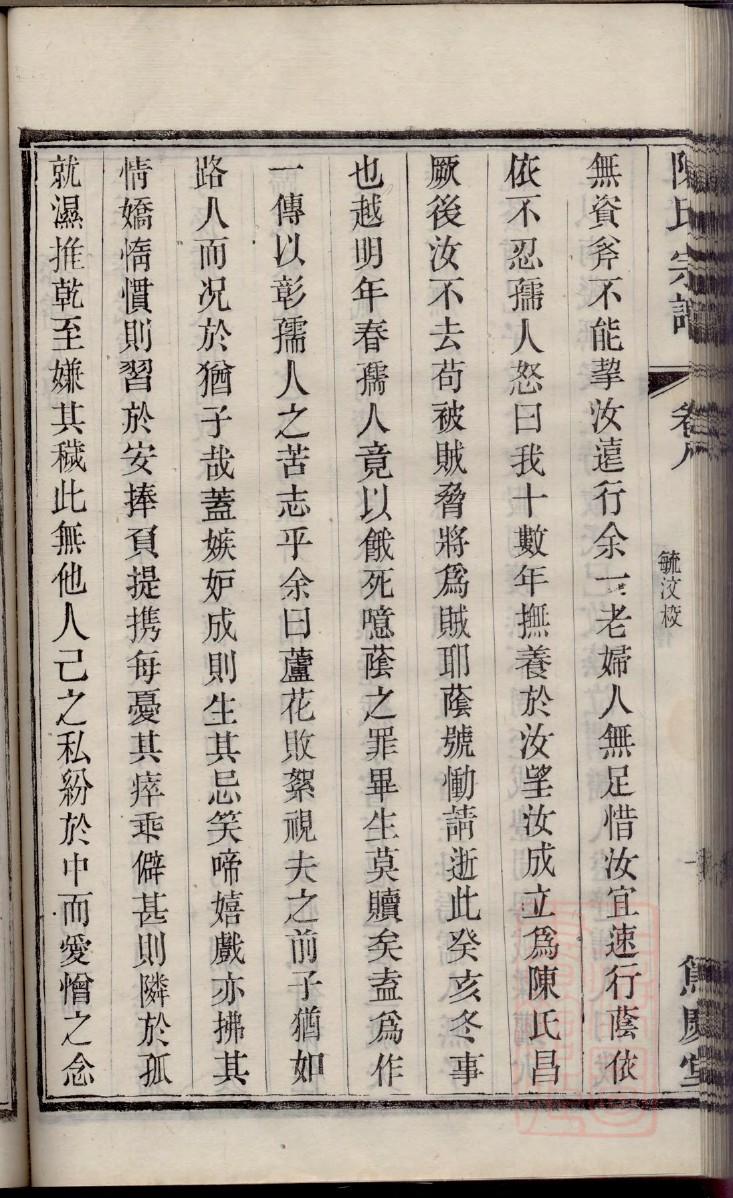 陳氏宗譜
卷八
毓汶校
篤慶堂
無資斧不能挈汝遠行余一老婦人無足惜汝宜速行蔭依
依不忍孺人怒曰我十數年撫養於汝望汝成立爲陳氏昌
厥後汝不去苟被賊脅將爲賊耶蔭號慟請逝此癸亥冬事
也越明年春孺人竟以餓死噫蔭之罪畢生莫贖矣盍爲作
一傳以彰孺人之苦志乎余曰蘆花敗絮視夫之前子猶如
路人而况於猶子哉蓋嫉妒成則生其忌笑啼嬉戲亦拂其
情嬌惰慣則習於安捧頁提携每憂其瘁乖僻甚則隣於孤
就濕推乾至嫌其穢此無他人己之私紛於中而愛憎之念